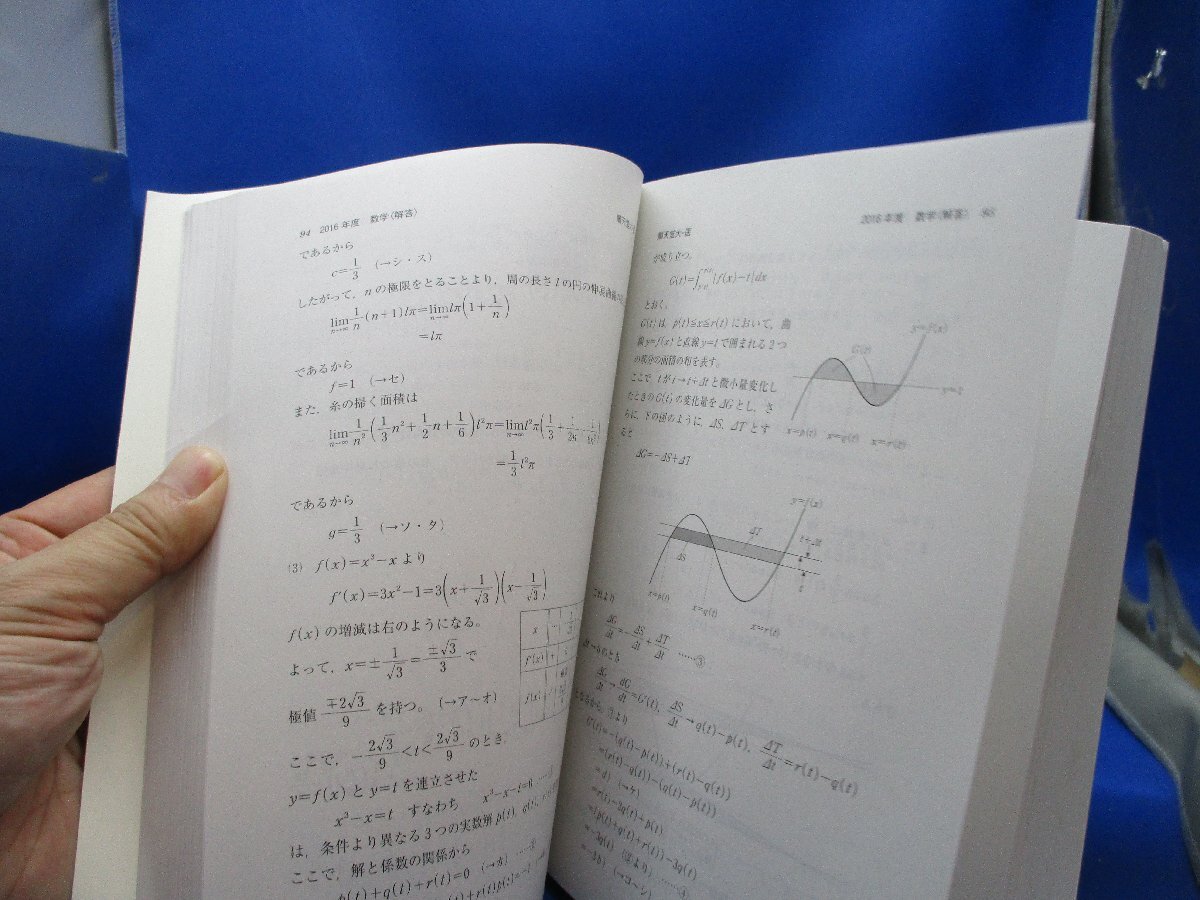 94 2016年度 数学〈解答〉
であるから
c=1/3 (→シ・ス)
したがって,nの極限をとることより,周の長さlの円の伸
lim n→∞ 1/n (n+1)lπ=lim n→∞ lπ(1+1/n)
=lπ
であるから
f=1 (→セ)
また,糸の掃く面積は
lim n→∞ 1/n²(1/3 n²+1/2 n+1/6)l²π=lim n→∞ l²π(1/3+
=1/3 l²π
であるから
g=1/3 (→ソ・タ)
(3) f(x)=x³-xより
f′(x)=3x²-1=3(x+1/√3)(x-1/√3)
f(x)の増減は右のようになる。
よって,x=±1/√3=±√3/3で
極値 ∓2√3/9 を持つ。(→ア~オ)
x
f′(x) +
f(x)
ここで,-2√3/9<t<2√3/9のとき,
y=f(x)とy=tを連立させた
x³-x=t すなわち x³-x-t=0
は,条件より異なる3つの実数解p(t), q(t),
ここで,解と係数の関係から
p(t)+q(t)+r(t)=0 (→カ)
順天堂大-医
2016年度 数学〈解答〉 95
が成り立つ。
G(t)=∫|f(x)-t|dx
とおく。
G(t)は,p(t)≦x≦r(t)において,曲
線y=f(x)と直線y=tで囲まれる2つ
の部分の面積の和を表す。
ここで,tがt→t+Δtと微小量変化し
たときのG(t)の変化量をΔGとし,さ
らに,下の図のように,ΔS,ΔTとす
ると
ΔG=-ΔS+ΔT
y=f(x)
G(t)
y=t
x=p(t) x=q(t) x=r(t)
y=f(x)
ΔT
t+Δt
ΔS
t
x=p(t)
x=q(t)
x=r(t)
これより
ΔG/Δt=-ΔS/Δt+ΔT/Δt ……③
Δt→0のとき
ΔG/Δt→dG/dt=G′(t), ΔS/Δt→q(t)-p(t), ΔT/Δt=r(t)-q(t)
となるから,③より
G′(t)=-(q(t)-p(t))+(r(t)-q(t))
=(r(t)-q(t))-(q(t)-p(t))
(→ケ)
=r(t)-2q(t)+p(t)
=(p(t)+q(t)+r(t))-3q(t)
=-3q(t) (②より) ……④